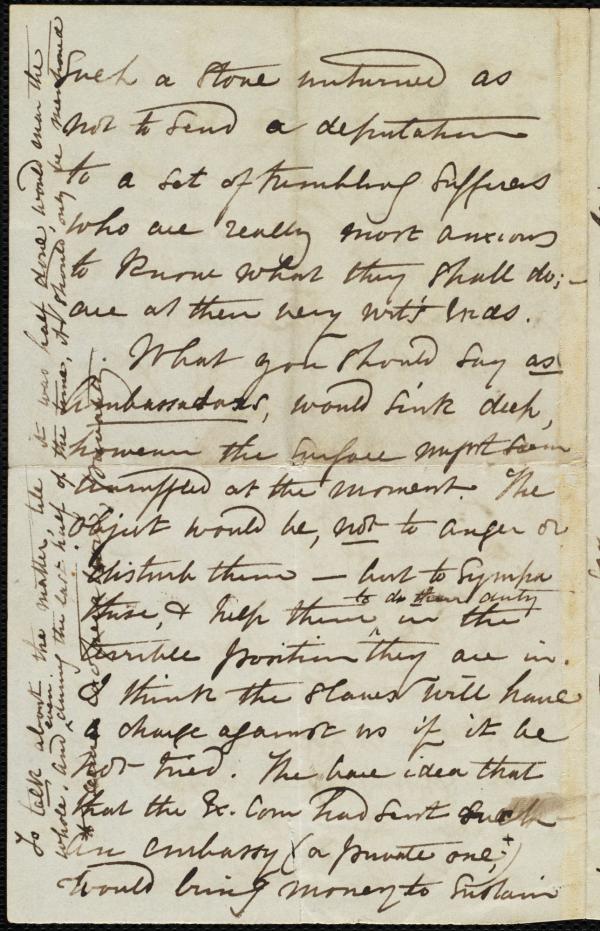 Such a stone unturned as
not to send a deputation
to a set of trembling sufferers
who are really most anxious
to know what they shall do; –
are at their very wit's ends.
What you should say as
Embassadors, would sink deep,
however the surface might seem
unruffled at the moment. The
object would be, not to anger or
disturb them — but to sympa
thise, & help them to do their duty in the
terrible position they are in.
I think the slaves will have
a charge against us if it be
not tried. The bare idea that
that the Ex. Com had sent such
an embassy (a private one;+)
would bring money to sustain
To talk about the matter, till it was half done, would ruin the
whole. and even during the last half of the time, it should only be mentioned